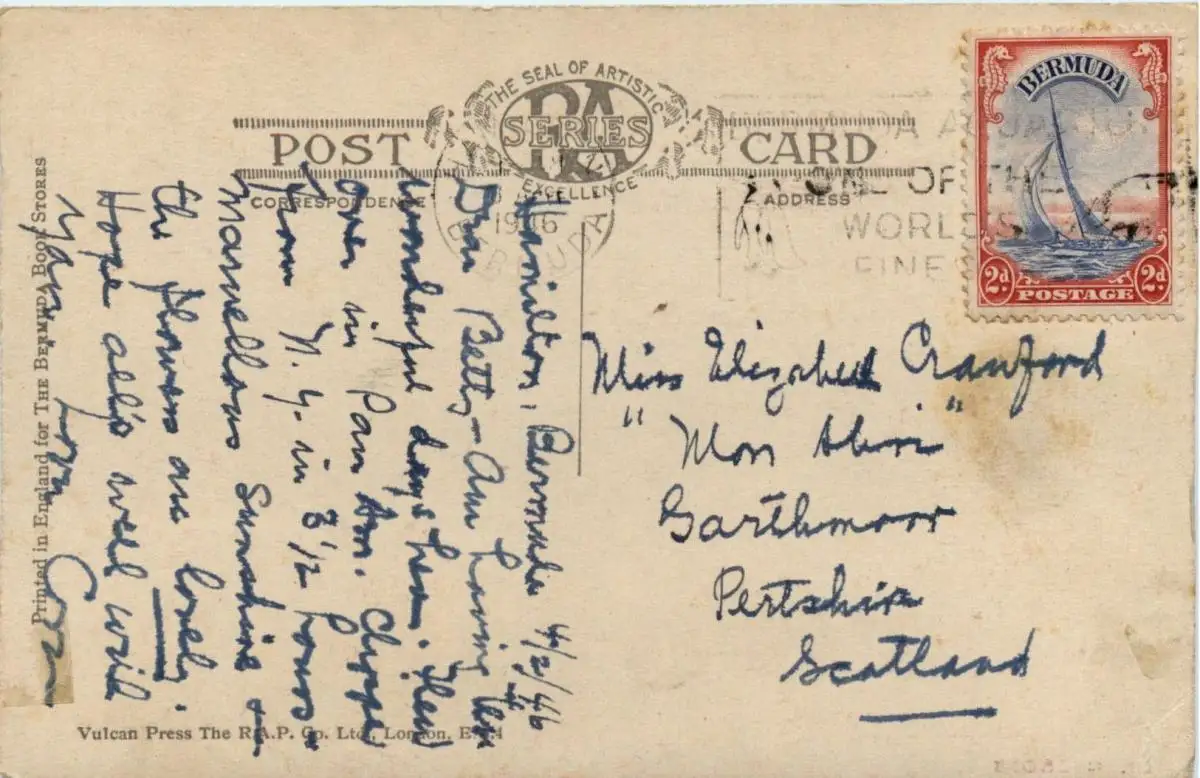 THE SEAL OF ARTISTIC
RA
SERIES
EXCELLENCE
POST
CARD
CORRESPONDENCE
ADDRESS
BERMUDA
2d
2d
POSTAGE
ONE OF THE
WORLD'S
FINE
BERMUDA
Hamilton, Bermuda 4/2/46
Dear Betty-Ann having
wonderful days here. Flew
over in Pan Am. Clipper
from N.Y. in 3 1/2 hours -
Marvellous Sunshine &
the flowers are lovely.
Hope all is well with
you. Love
Miss Elizabeth Crawford
"Mon Abri"
Garthmoor
Pertshire
Scotland
Printed in England for THE BERMUDA BOOK STORES
Vulcan Press The R.A.P. Co. Ltd., London, E.C.4